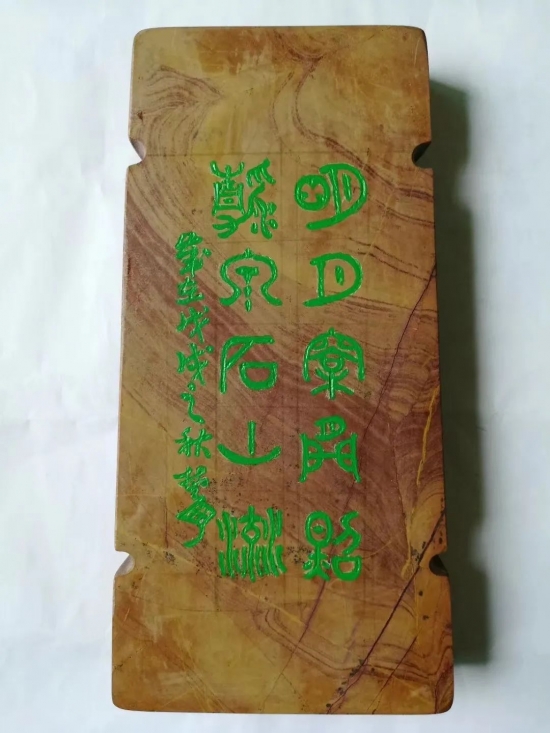 明月松間照
清泉石上流
歲在戊戌之秋